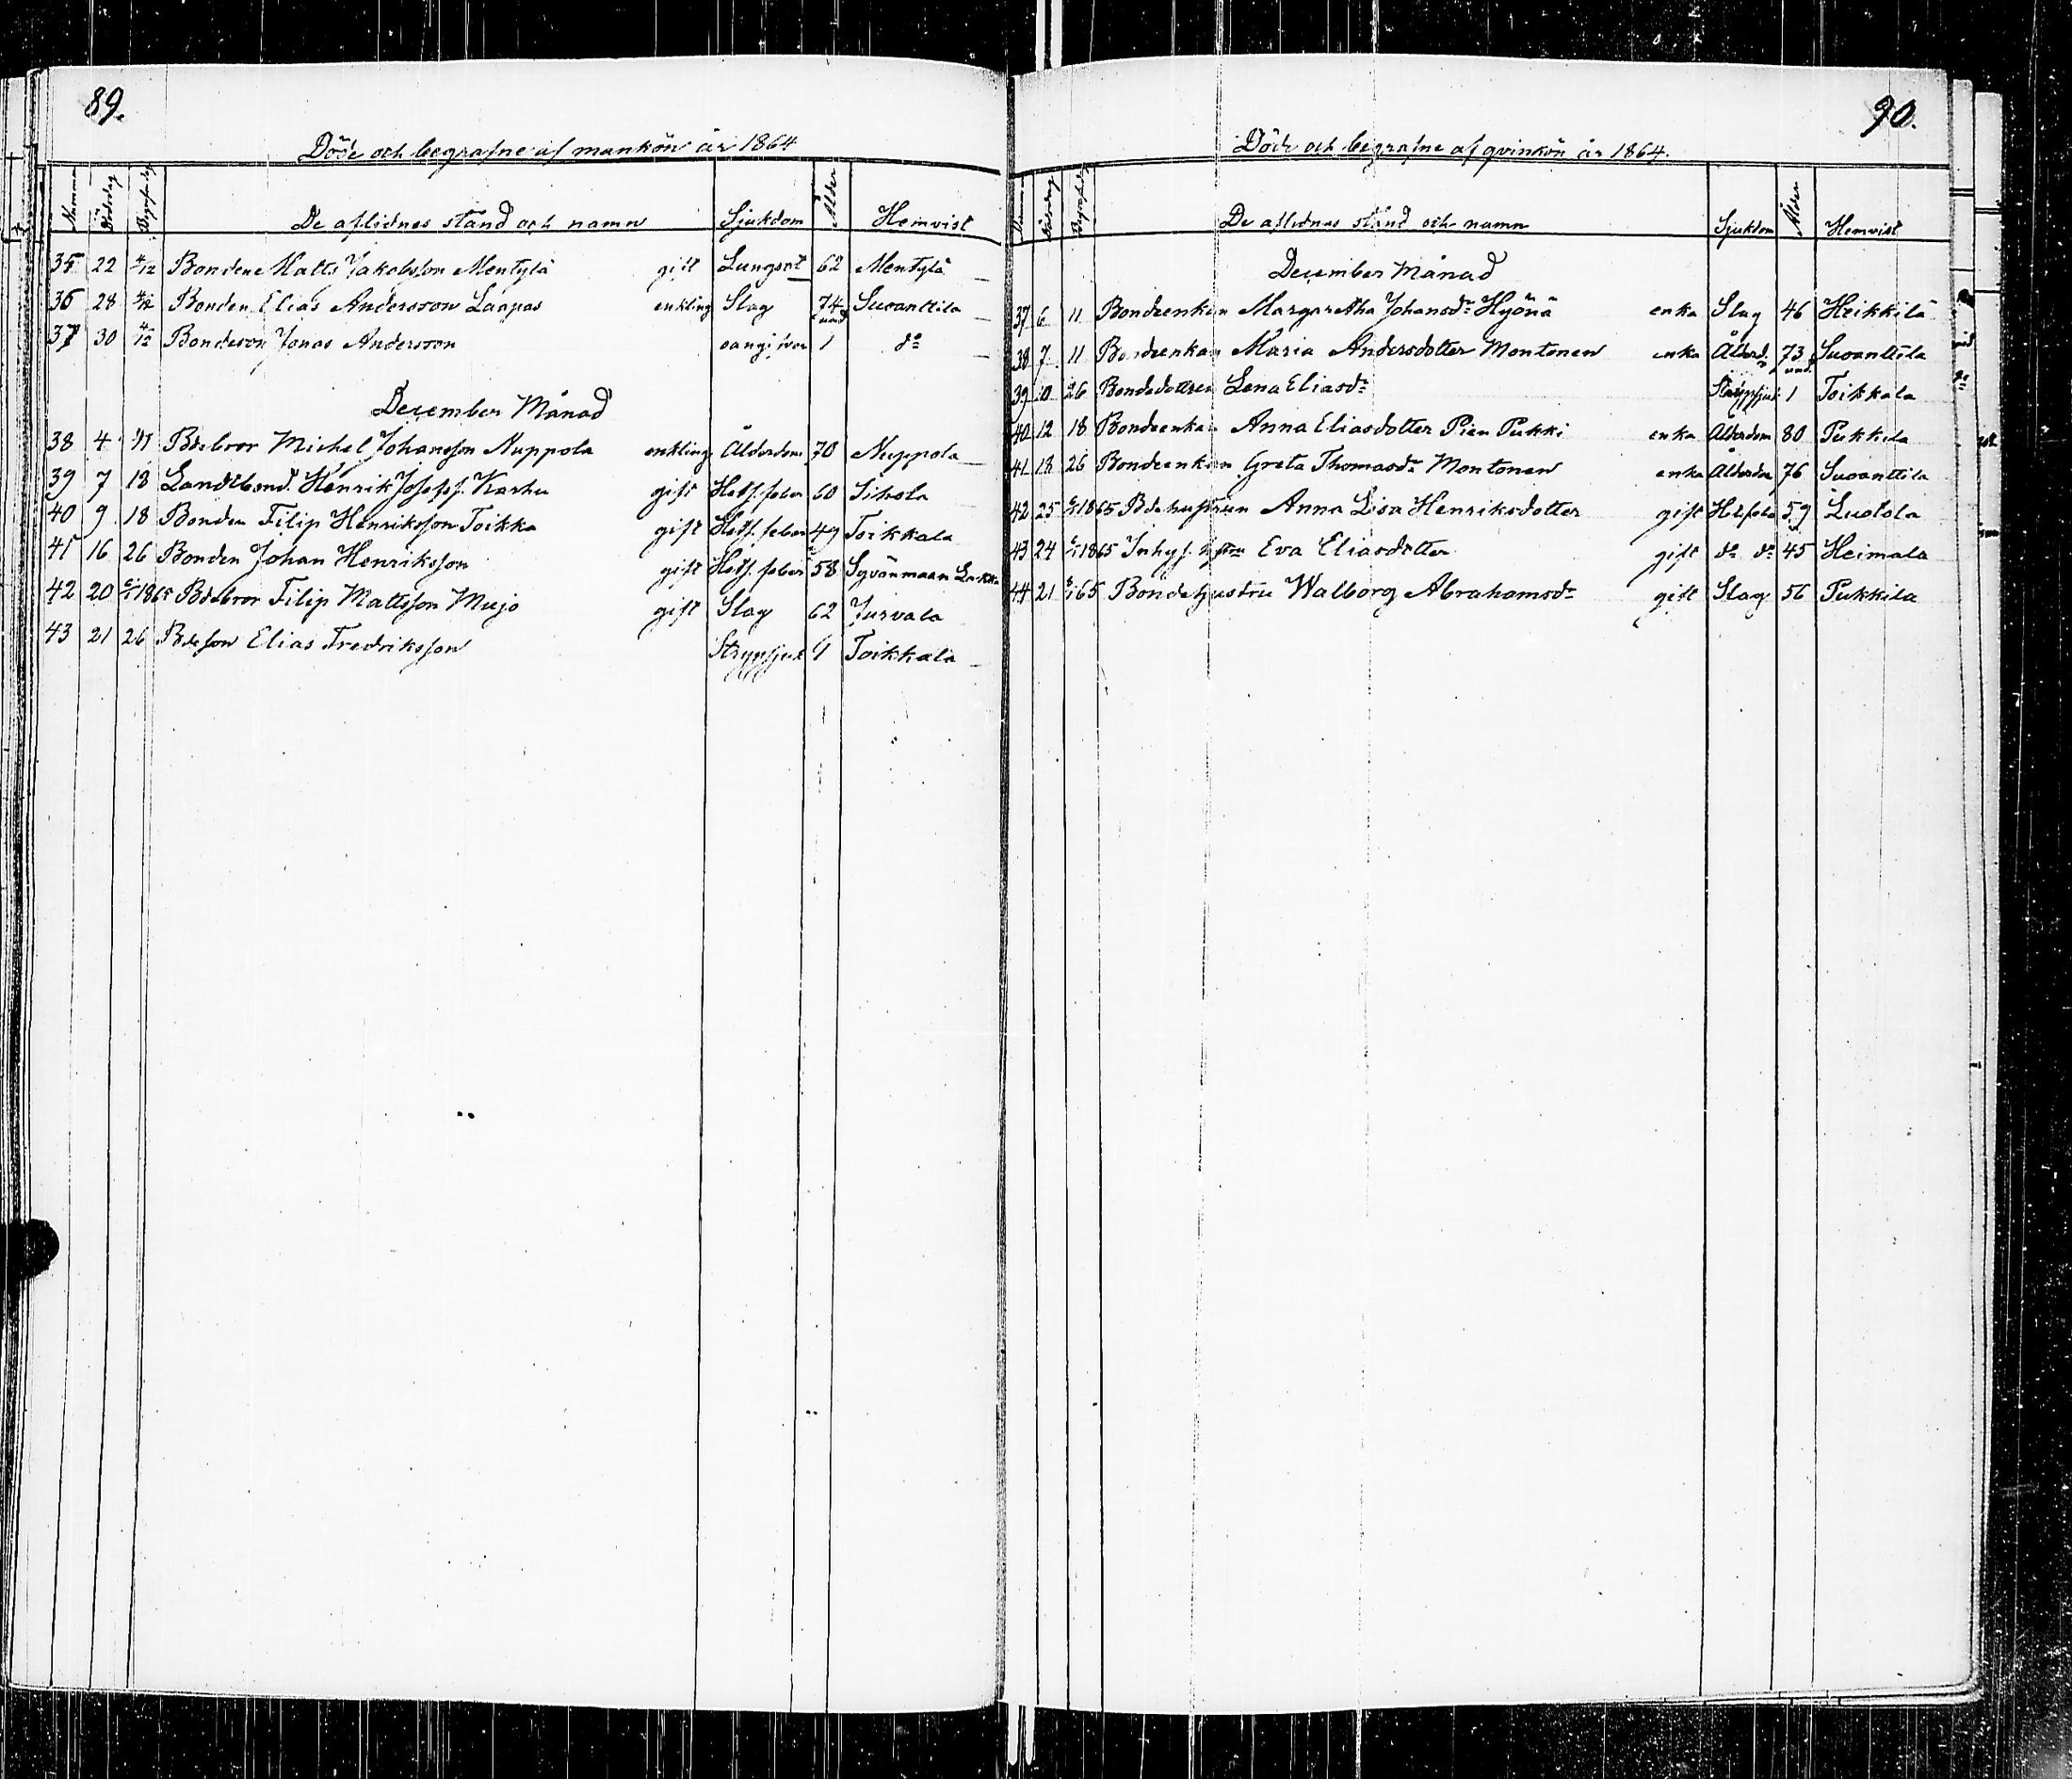 89.
Döde och begrafne af mankön år 1864
Numme Dödsdag Begrafn.dag De aflidnes stånd och namn Sjukdom Ålder Hemvist
35 22 4/12 Bonden Matts Jakobsson Mentylä gift Lungsot 62 Mentylä
36 28 4/12 Bonden Elias Andersson Laapas enkling Slag 74 Suoanttila
37 30 4/12 Bondeson Jonas Andersson oangifven 1 do
December Månad
38 4 11 Bdebror Michel Johansson Nuppola enkling Ålderdom 70 Nuppola
39 7 18 Landtbond. Henrik Josefss. Karhu gift Hetf. feber 60 Sihola
40 9 18 Bonden Filip Henriksson Toikka gift Hetf. feber 49 Toikkala
41 16 26 Bonden Johan Henriksson gift Hetf. feber 58 Syvänmaan
42 20 6/1 1865 Bdebror Filip Mattsson Mujo gift Slag 62 Jurvala
43 21 26 Bdeson Elias Fredriksson Strypsjuk 1 Toikkala
90.
Döde och begrafne af qvinkön år 1864.
Dödsdag Begrafn.dag De aflidnes stånd och namn Sjukdom Ålder Hemvist
December Månad
37 6 11 Bondeenkan Margaretha Johansdr Hyönä enka Slag 46 Heikkilä
38 7 11 Bondeenkan Maria Andersdotter Montonen enka Ålderd. 73 Suoanttila
39 10 26 Bondedottren Lena Eliasdr Strypsjuk 1 Toikkala
40 12 18 Bondeenkan Anna Eliasdotter Pien Pukki enka Ålderdom 80 Pukkila
41 18 26 Bondeenkan Greta Thomasdr Montonen enka Ålderdom 76 Suoanttila
42 25 6/1 1865 Bdehustrun Anna Lisa Henriksdotter gift Hetfeber 59 Luotola
43 24 6/1 1865 Inhys. Eva Eliasdotter gift do do 45 Heimala
44 21 65 Bondehustru Walborg Abrahamsdr gift Slag 56 Pukkila